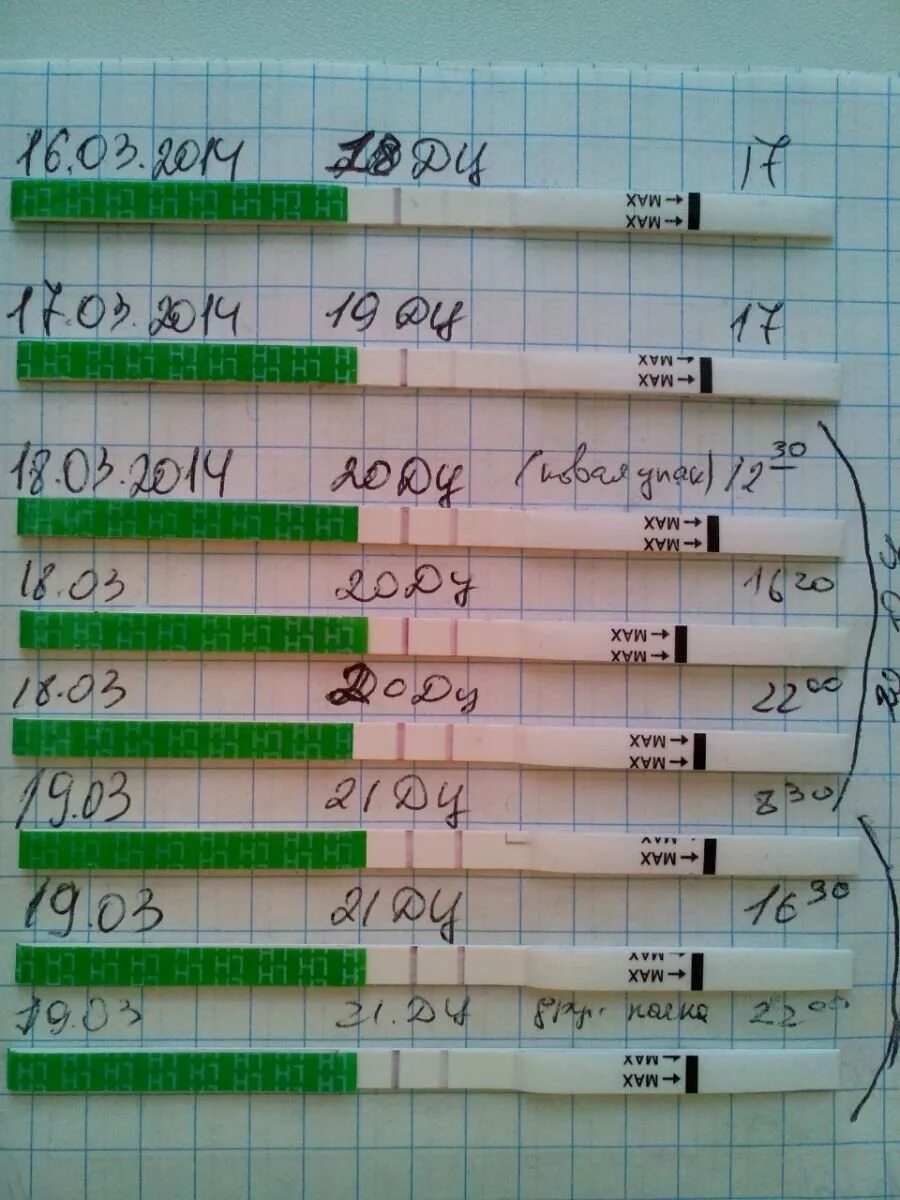 16.03.2014 18 ДЦ 17
← MAX
← MAX
17.03.2014 19 ДЦ 17
← MAX
← MAX
18.03.2014 20 ДЦ (новая упак) 12 30
← MAX
← MAX
18.03 20 ДЦ 16 20
← MAX
← MAX
18.03 20 ДЦ 22 00
← MAX
← MAX
19.03 21 ДЦ 8 30
← MAX
← MAX
19.03 21 ДЦ 16 30
← MAX
← MAX
19.03 21.ДЦ 22 00
← MAX
← MAX